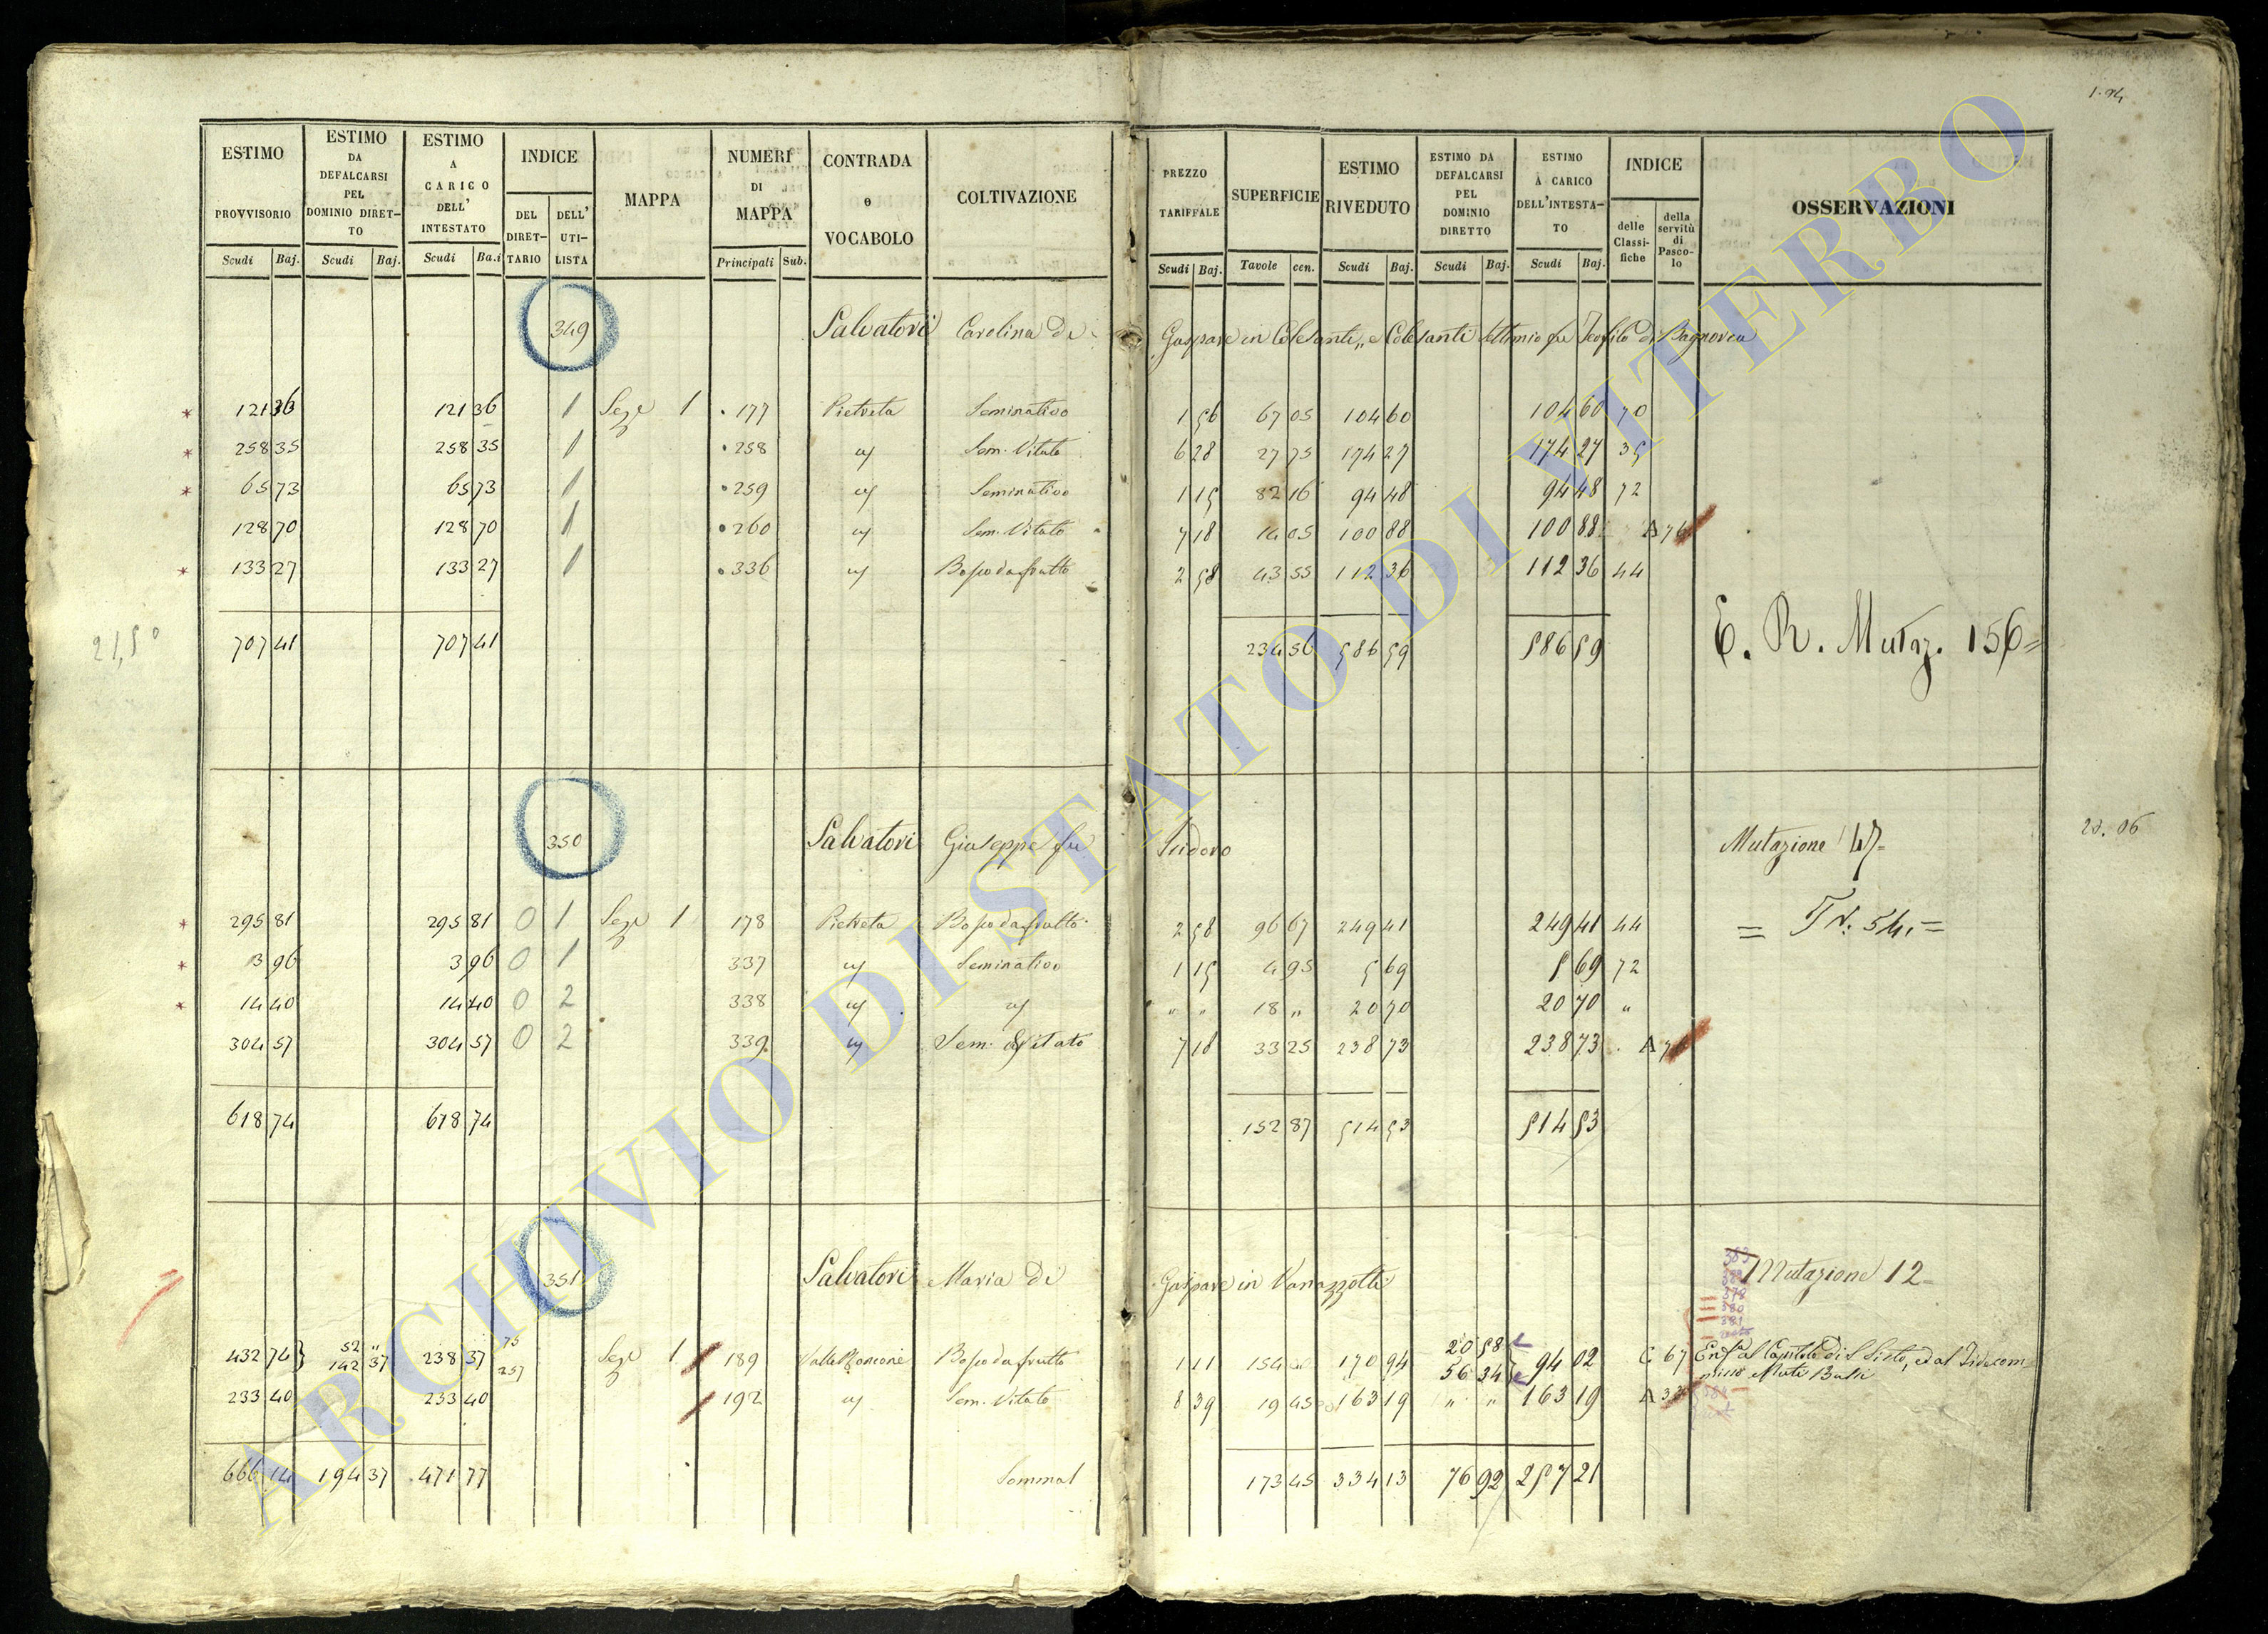 1.94
ESTIMO PROVVISORIO
ESTIMO DA DEFALCARSI PEL DOMINIO DIRET-TO
ESTIMO A CARICO DELL' INTESTATO
INDICE
DEL DIRET-TARIO
DELL' UTI-LISTA
MAPPA
NUMERI DI MAPPA
CONTRADA o VOCABOLO
COLTIVAZIONE
PREZZO TARIFFALE
SUPERFICIE
ESTIMO RIVEDUTO
ESTIMO DA DEFALCARSI PEL DOMINIO DIRETTO
ESTIMO À CARICO DELL'INTESTA-TO
INDICE
delle Classi-fiche
della servitù di Pasco-lo
OSSERVAZIONI
Scudi Baj. Scudi Baj. Scudi Ba.i Principali Sub. Scudi Baj. Tavole cen. Scudi Baj. Scudi Baj. Scudi Baj.
349 Salvatori Carolina di Gaspare in Colesanti, e Colesanti Settimio fu Teofilo di Bagnorea
121 36 121 36 1 Sezе 1 177 Pietreta Seminativo 1 56 67 05 104 60 104 60 70
258 35 258 35 1 258 " Sem. Vitato 6 28 27 75 174 27 174 27 35
65 73 65 73 1 259 " Seminativo 1 15 82 16 94 48 94 48 72
128 70 128 70 1 260 " Sem. Vitato 7 18 14 05 100 88 100 88 A 76
133 27 133 27 1 336 " Bosco da frutto 2 58 43 55 112 36 112 36 44
21,50 707 41 707 41 234 56 586 59 586 59 E. R. Mutaz. 156=
350 Salvatori Giuseppe fu Isidoro Mutazione 47= 20.06
295 81 295 81 0 1 Seze 1 178 Pietreta Bosco da frutto 2 58 96 67 249 41 249 41 44 = T N. 54. =
3 96 3 96 0 1 337 " Seminativo 1 15 4 95 5 69 5 69 72
14 40 14 40 0 2 338 " " " " 18 " 20 70 20 70 "
304 57 304 57 0 2 339 " Sem. Vitato 7 18 33 25 238 73 238 73 A 76
618 74 618 74 152 87 514 53 514 53
351 Salvatori Maria di Gaspare in Vanazzotti Mutazione 12=
383
378
380
381
432 74 52 " 142 37 238 37 75 257 Seze 1 189 Valle Moncone Bosco da frutto 1 11 154 00 170 94 20 58 56 34 94 02 C 67 Enfa al Capitolo di S. Sisto, ed al Fidecom=
misso Muti Bussi
233 40 233 40 192 " Sem. Vitato 8 39 19 45 163 19 " " 163 19 A 33
666 14 194 37 471 77 Somma 173 45 334 13 76 92 257 21
ARCHIVIO DI STATO DI VITERBO